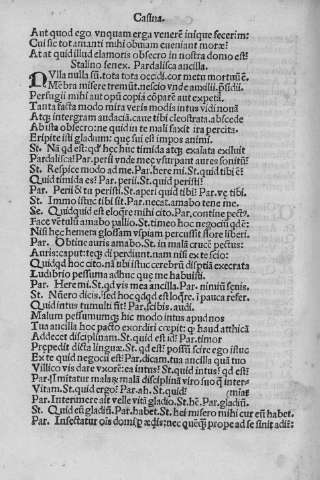 Casina.
Aut quod ego vnquam erga venerē iniq̄ue fecerim:
Cui sic tot amanti mihi obuiam eueniant moræ?
At at quid illud clamoris obsecro in nostra domo est?
Stalino senex. Pardalisca ancilla.
Nulla nulla sū. tota tota occidi. cor metu mortuū ē.
Mēbra misere tremūt. nescio vnde auxilii. p̄sidii.
Perfugii mihi aut opū copiā cōparē aut expetā.
Tanta facta modo mira veris modis intus vidi nouā
Atq̃ integram audaciā. caue tibi cleostrata. abscede
Ab ista obsecro: ne quid in te mali faxit ira percita.
Eripite isti gladium: quę sui est impos animi.
St. Nā qd est: qđ hęc huc timida atq̃ exalata exsiluit
Pardalisca? Par. perii vnde mec vsurpant aures sonitū?
St. Respice modo ad me. Par. here mi. St. quid tibi ē?
Quid timida es? Par. perii. St. quid peristi?
Par. Perii & tu peristi. St. aperi quid tibi? Par. vę tibi.
St. Immo istuc tibi sit. Par. necat. amabo tene me.
Se. Quidquid est eloq̄re mihi cito. Par. contine pectꝰ.
Face vētulū amabo pallio. St. timeo hoc negocii qđ ē:
Nisi hęc hemeta glossam vspiam percussit flore liberi.
Par. Obtine auris amabo. St. in malā crucē pectus:
Auris: caput: teq̃ di perdiunt. nam nisi ex te scio:
Quidqđ hoc cito. nā tibi istuc cerebrū disptiā excetrata
Ludibrio pessuma adhuc que me habuisti.
Par. Here mi. St. qd vis mea ancilla. Par. nimiū senis.
St. Nūero dicis. sed hoc qdqd est loq̄re. ī pauca refer.
Quid intus tumulti fūt? Par. scibis. audi.
Malum pessumumq̃ hic modo intus apud nos
Tua ancilla hoc pacto exordiri cœpit: q̄ haud atthicā
Addecet disciplinam. St. quid est id? Par. timor
Prępedit dicta linguæ. St. qd est? possū scire ego istuc
Ex te quid negocii est? Par. dicam. tua ancilla quā tuo
Villico vis dare vxorē: ea intus? St. quid intus? qd est?
Par. Imitatur malaꝝ malā disciplinā viro suo q̄ inter-
Vitam. St. quid ergo? Par. ah. St. quid? (miat
Par. Interimere ait velle vitā gladio. St. hē. Par. gladiū.
St. Quid eū gladiū. Par. habet. St. hei misero mihi cur eū habet.
Par. Insectatur oīs domi ꝑ ædis: nec quēq̃ prope ad se sinit adire: